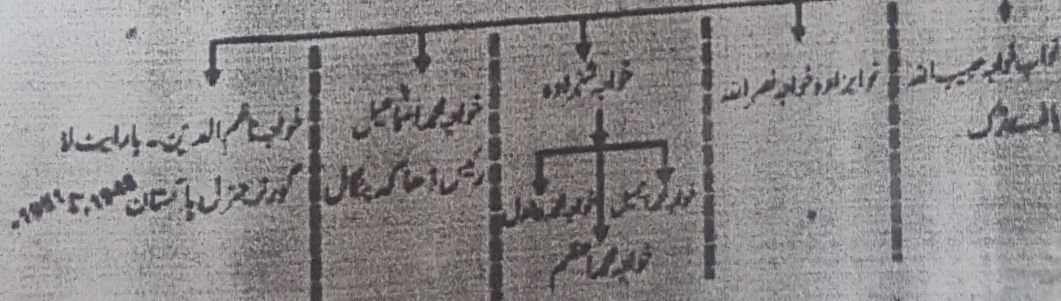 خواجہ حبیب اللہ
نوابزادہ خواجہ نصر اللہ
خواجہ شہزادہ
خواجہ محمد عادل
خواجہ محمد اعظم
خواجہ محمد اسماعیل
رئیس ڈھاکہ بنگال
خواجہ ناظم الدین۔ بار ایٹ لا
گورنر جنرل پاکستان